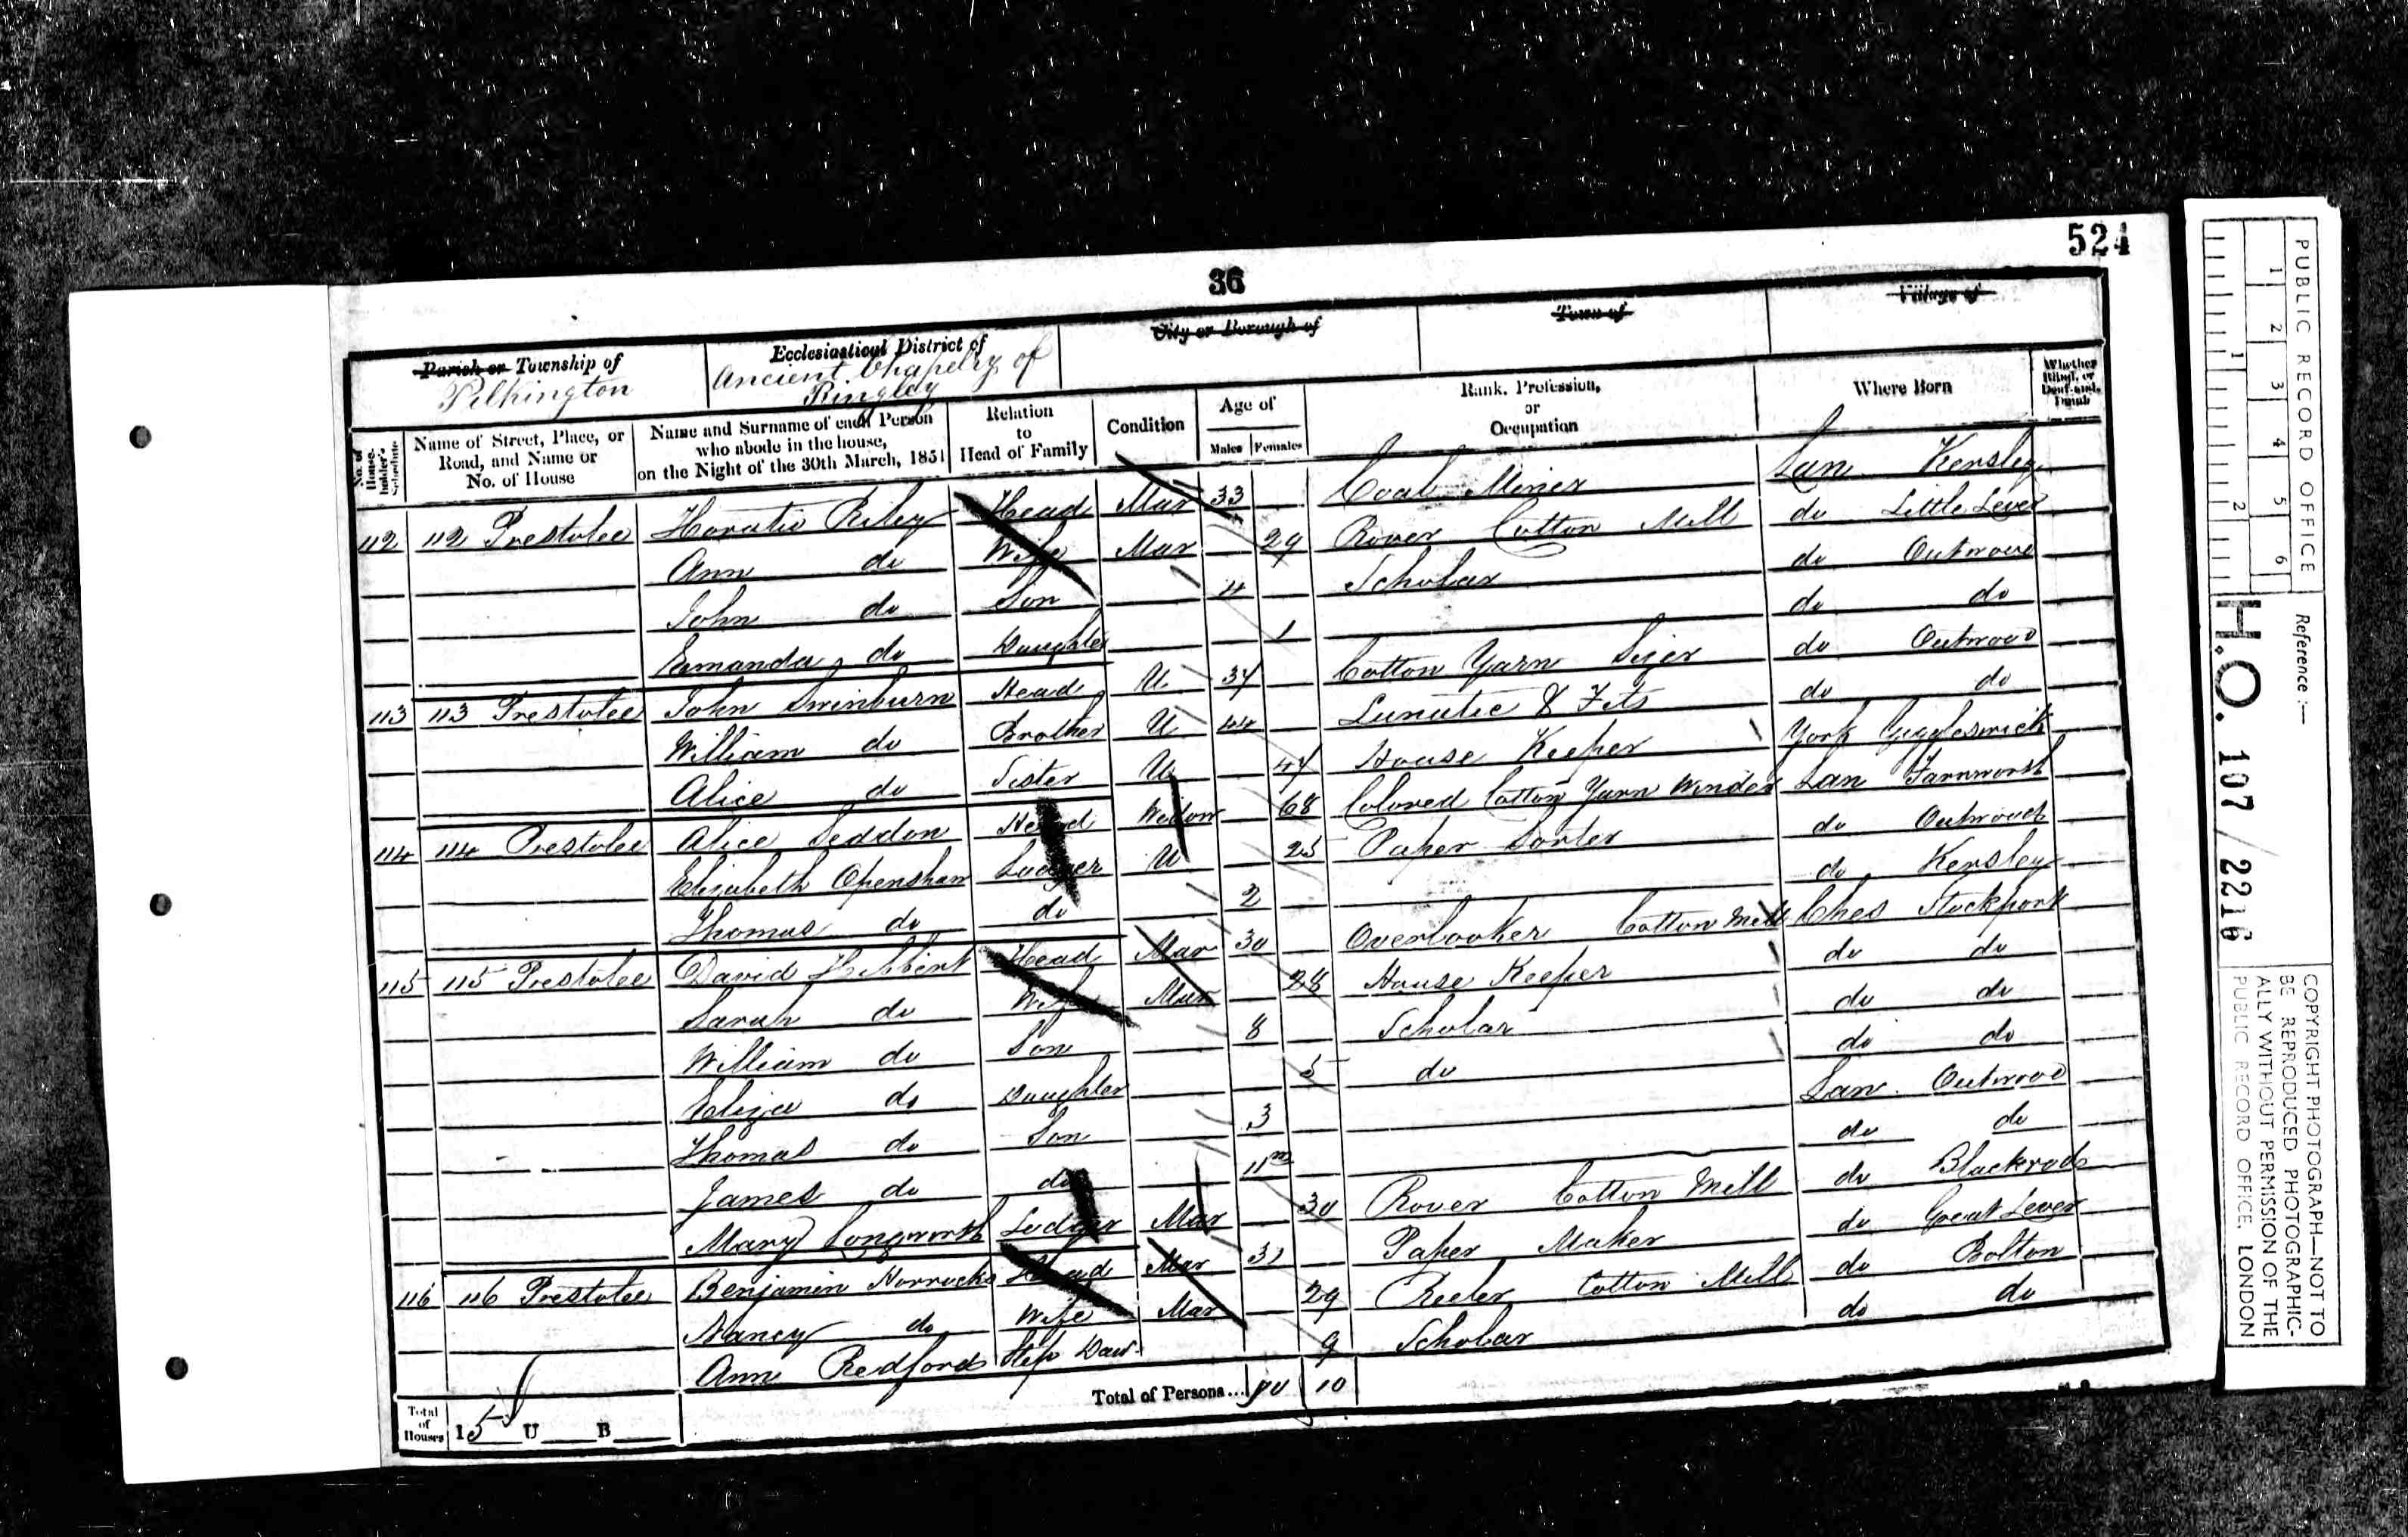 524
36
Parish or Township of
Pilkington
Ecclesiastical District of
Ancient Chapelry of
Ringley
City or Borough of
Town of
Village of
No. of House-holder's Schedule
Name of Street, Place, or Road, and Name or No. of House
Name and Surname of each Person who abode in the house, on the Night of the 30th March, 1851
Relation to Head of Family
Condition
Age of
Males Females
Rank, Profession, or Occupation
Where Born
Whether Blind, or Deaf-and-Dumb
112 112 Prestolee Horatio Riley Head Mar 33 Coal Miner Lan Kersley
Ann do Wife Mar 29 Rover Cotton Mill do Little Lever
John do Son 4 Scholar do Outwood
Emanda do Daughter 1 do do
113 113 Prestolee John Swinburn Head U 37 Cotton Yarn Sizer do Outwood
William do Brother U 44 Lunatic & Fits do do
Alice do Sister U 47 House Keeper York Giggleswick
114 114 Prestolee Alice Seddon Head Widow 68 Colored Cotton Yarn Winder Lan Farnworth
Elizabeth Openshaw Lodger U 25 Paper Sorter do Outwood
Thomas do do 2 do Kersley
115 115 Prestolee David Hibbert Head Mar 30 Overlooker Cotton Mill Ches Stockport
Sarah do Wife Mar 28 House Keeper do do
William do Son 8 Scholar do do
Eliza do Daughter 5 do do do
Thomas do Son 3 Lan Outwood
James do do 11m do do
Mary Longworth Lodger Mar 30 Rover Cotton Mill do Blackrod
116 116 Prestolee Benjamin Horrocks Head Mar 32 Paper Maker do Great Lever
Nancy do Wife Mar 29 Reeler Cotton Mill do Bolton
Ann Redford Step Daur 9 Scholar do do
Total of Houses I 5 U B
Total of Persons... 10 10
PUBLIC RECORD OFFICE
1 2 3 4 5 6
1 2
Reference :—
H.O. 107/2216
COPYRIGHT PHOTOGRAPH—NOT TO
BE REPRODUCED PHOTOGRAPHIC-
ALLY WITHOUT PERMISSION OF THE
PUBLIC RECORD OFFICE, LONDON